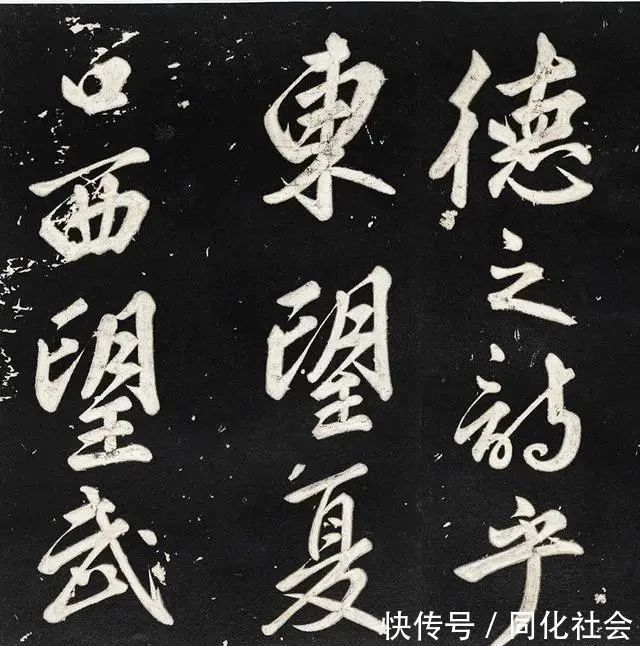 德之詩乎
東望夏
口西望武
快传号 / 同化社会